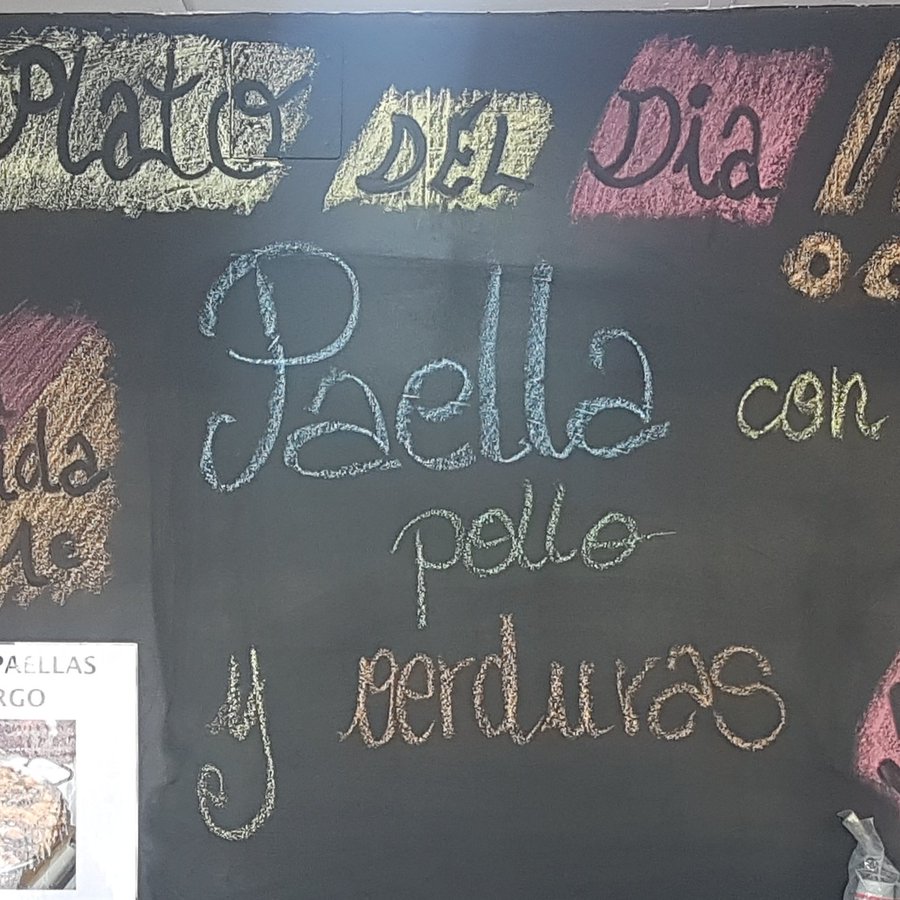 Plato DEL Dia !!
Paella con
pollo
y verduras
PAELLAS
RGO